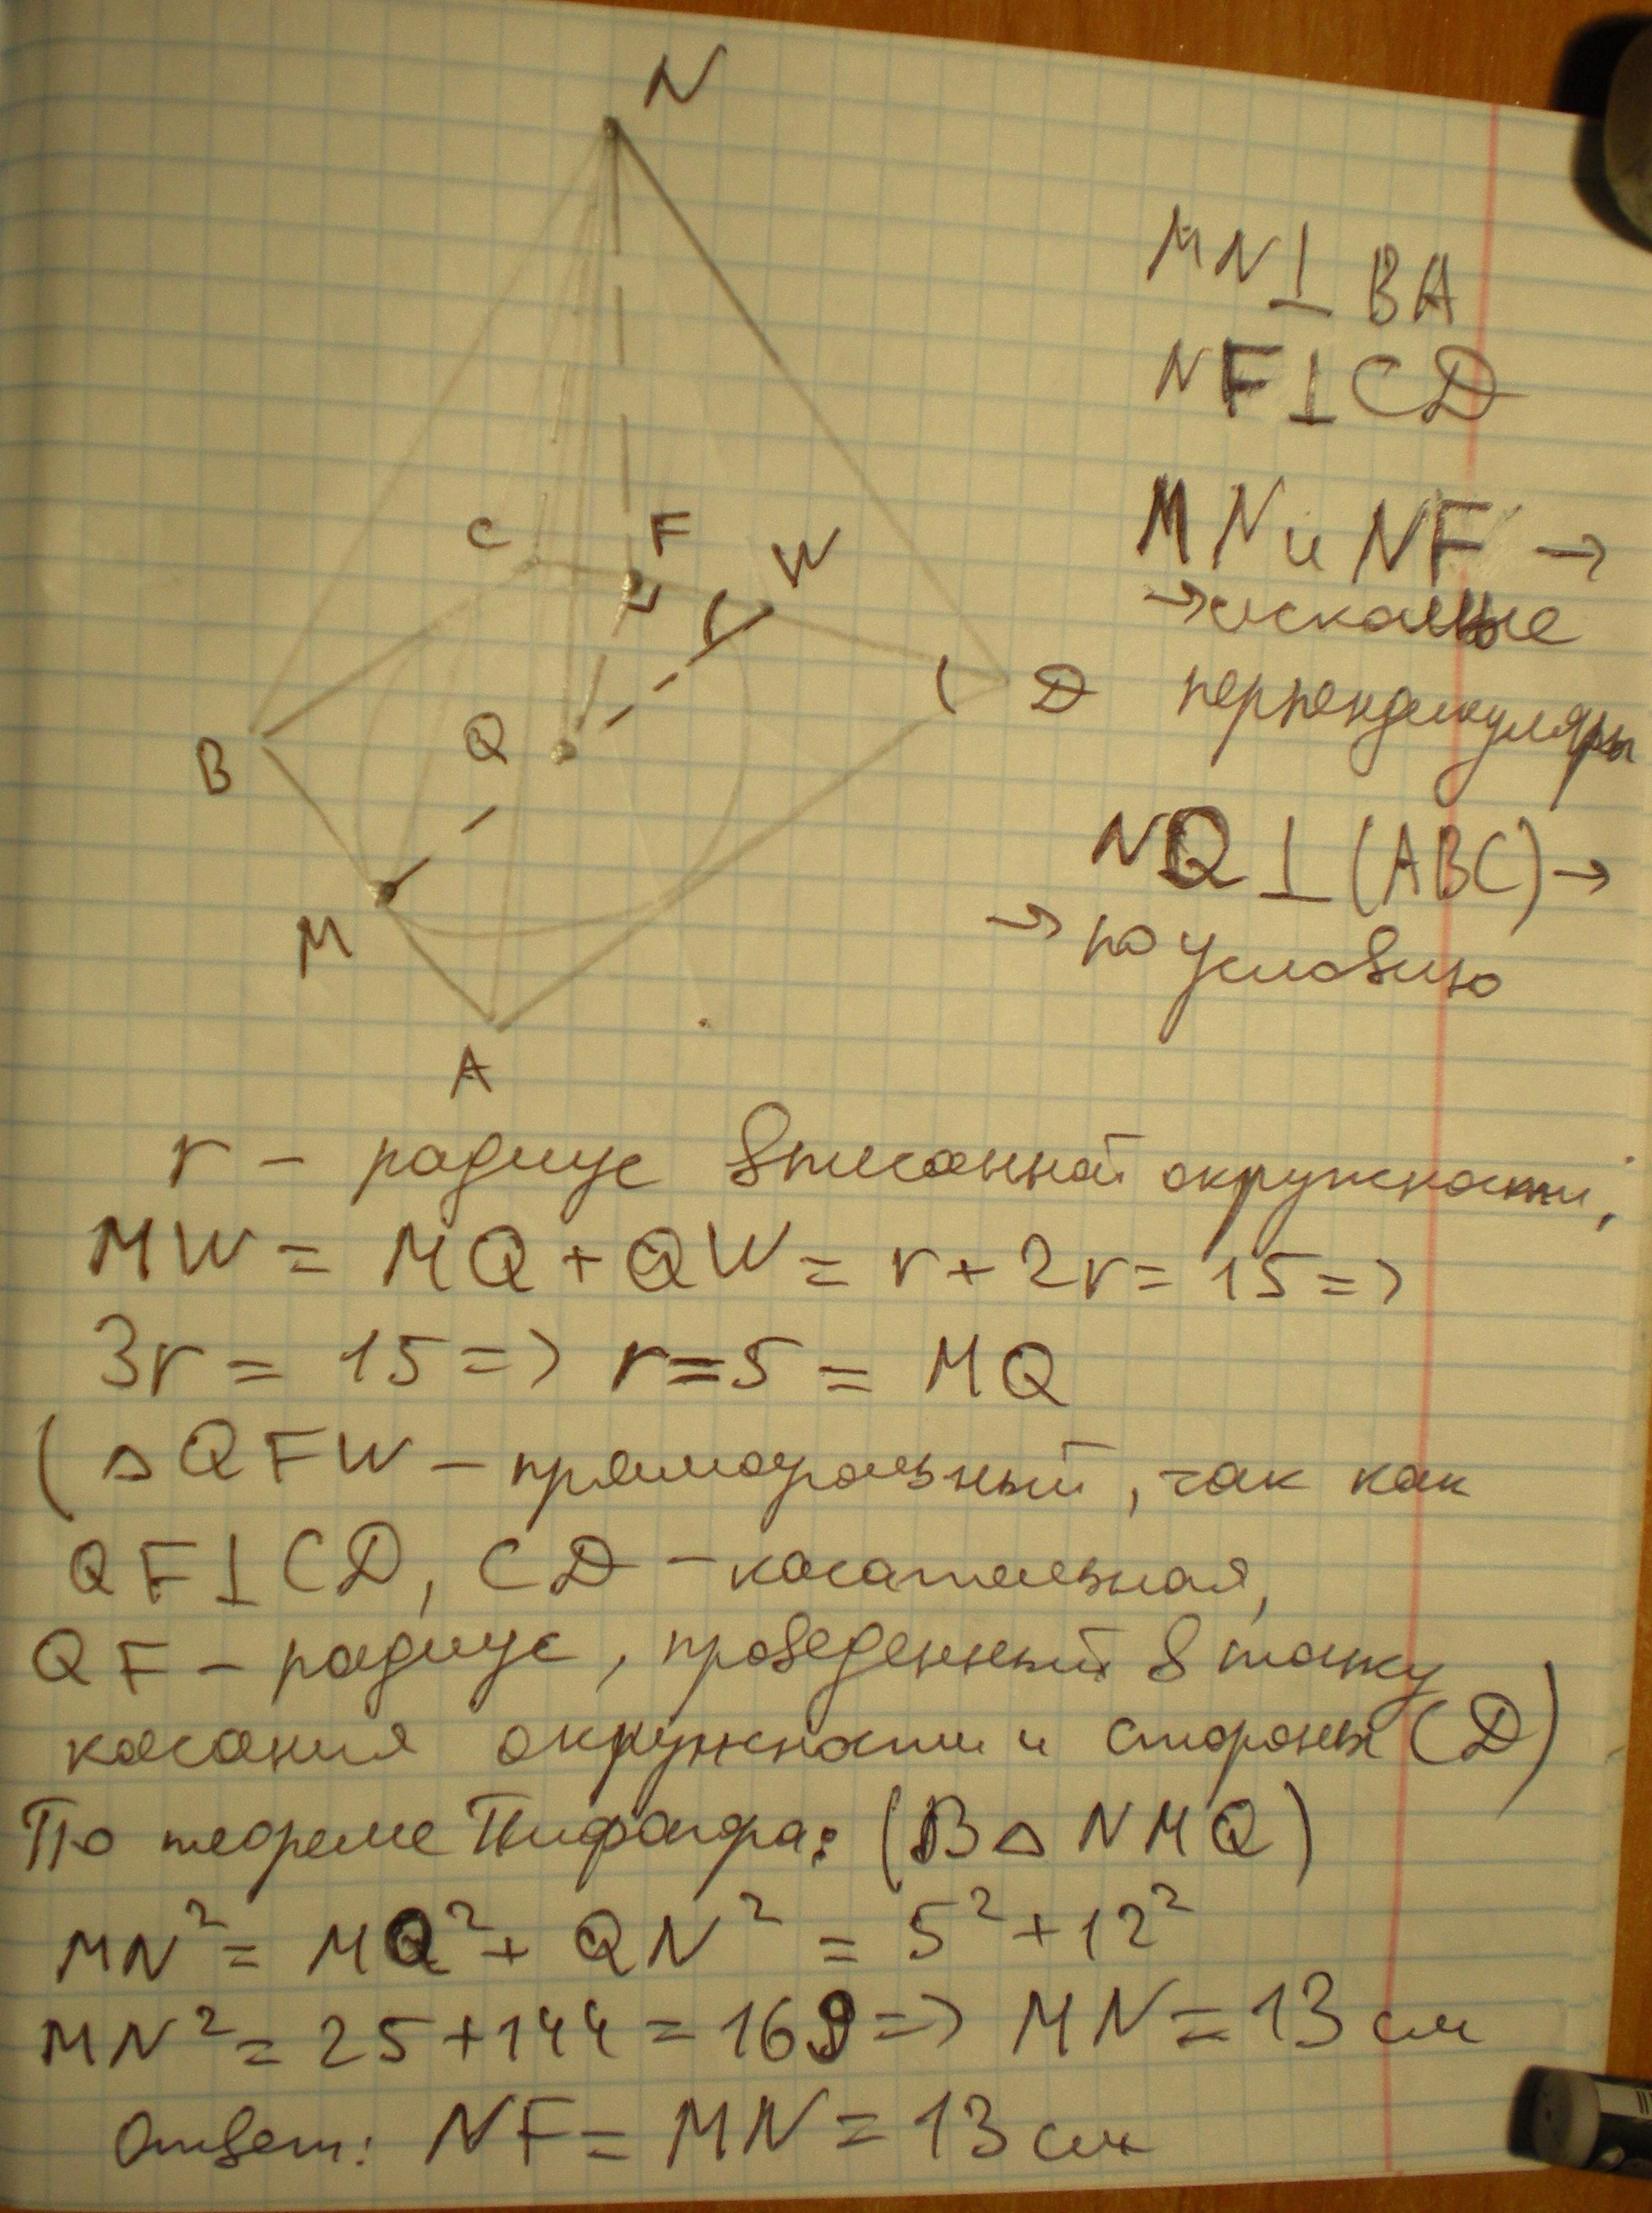 N
C
F
W
Q
B
D
M
A
MN⊥BA
NF⊥CD
MN и NF →
→ искомые
перпендикуляры
NQ⊥(ABC) →
→ по условию
r – радиус вписанной окружности,
MW = MQ + QW = r + 2r = 15 =>
3r = 15 => r = 5 = MQ
(△QFW – прямоугольный, так как
QF⊥CD, CD – касательная,
QF – радиус, проведенный в точку
касания окружности и стороны CD)
По теореме Пифагора: (В △ NMQ)
MN² = MQ² + QN² = 5² + 12²
MN² = 25 + 144 = 169 => MN = 13 см
Ответ: NF = MN = 13 см